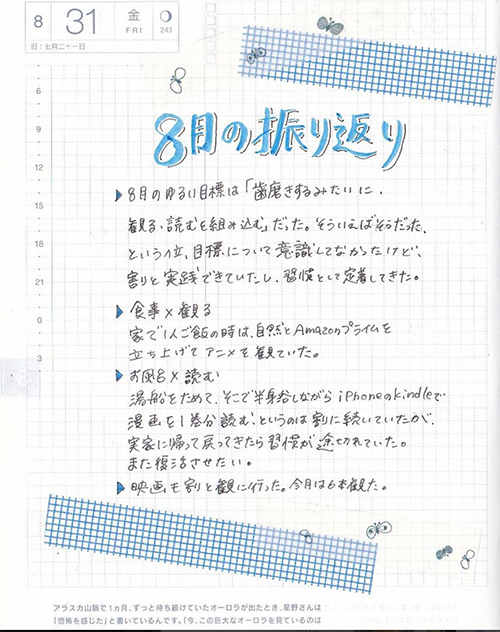 8 31 金 FRI 243
旧:七月二十一日
8月の振り返り
6
9
12
15
18
21
0
3
▶8月のゆるい目標は「歯磨きするみたいに、
観る・読むを組み込む」だった。そういえばそうだった、
という位、目標について意識してなかったけど、
割りと実践できていたし、習慣として定着してきた。
▶食事×観る
家で1人ご飯の時は、自然とAmazonプライムを
立ち上げてアニメを観ていた。
▶お風呂×読む
湯船をためて、そこで半身浴しながらiPhoneのkindleで
漫画を1巻分読む、というのは割に続いていたが、
実家に帰って戻ってきたら習慣が途切れていた。
また復活させたい。
▶映画も割と観に行った。今月は6本観た。
アラスカ山脈で1ヵ月、ずっと待ち続けていたオーロラが出たとき、星野さんは
「恐怖を感じた」と書いているんです。「今、この巨大なオーロラを見ているのは